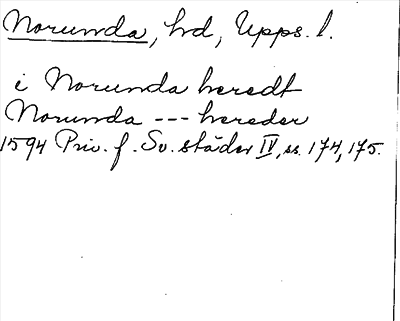 Norunda, hd, Upps. l.
i Norunda heredt
Norunda --- hereder
1594 Priv. f. Sv. städer IV, ss. 174, 175.